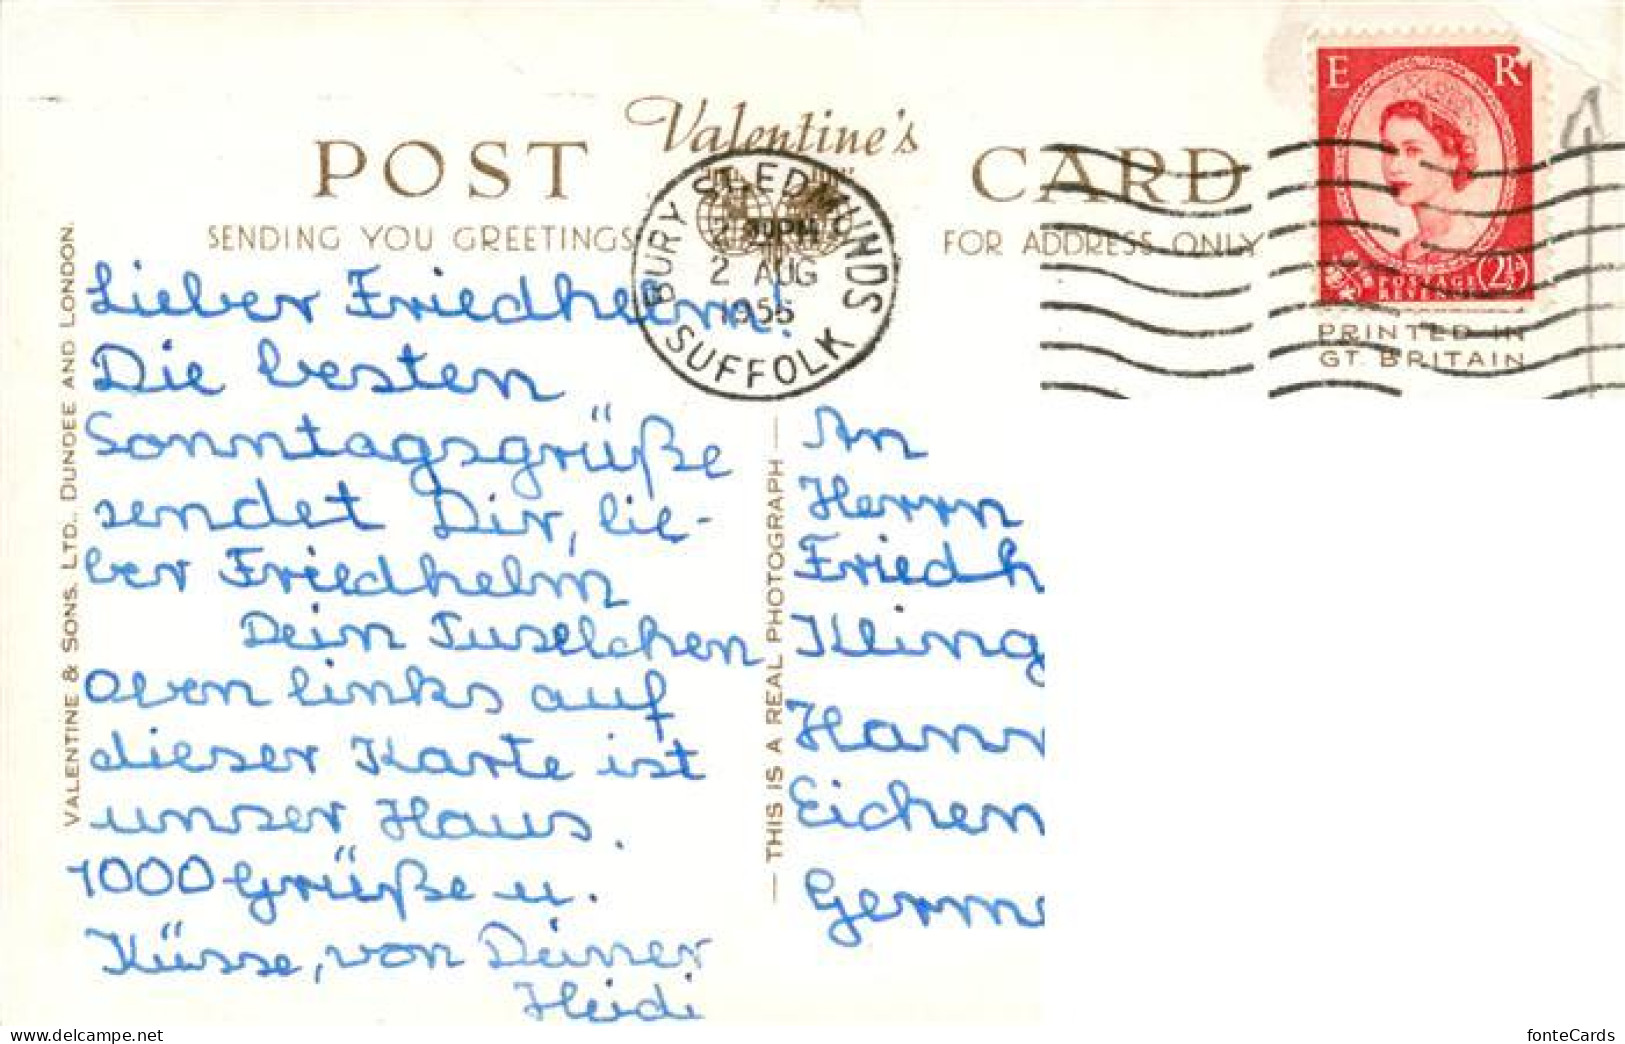 Valentine's
POST CARD
SENDING YOU GREETINGS
FOR ADDRESS ONLY
BURY ST. EDMUNDS
2 AUG
1956
SUFFOLK
E R
POSTAGE
REVENUE
2½D
PRINTED IN
GT. BRITAIN
VALENTINE & SONS, LTD., DUNDEE AND LONDON.
Lieber Friedhelm!
Die besten
Sonntagsgrüße
sendet Dir, lie-
ber Friedhelm
Dein Tuselchen
oben links auf
dieser Karte ist
unser Haus.
1000 Grüße u.
Küsse, von Deiner
Heidi
— THIS IS A REAL PHOTOGRAPH —
An
Herrn
Friedh
Kling
Hann
Eichen
Germ
fonteCards